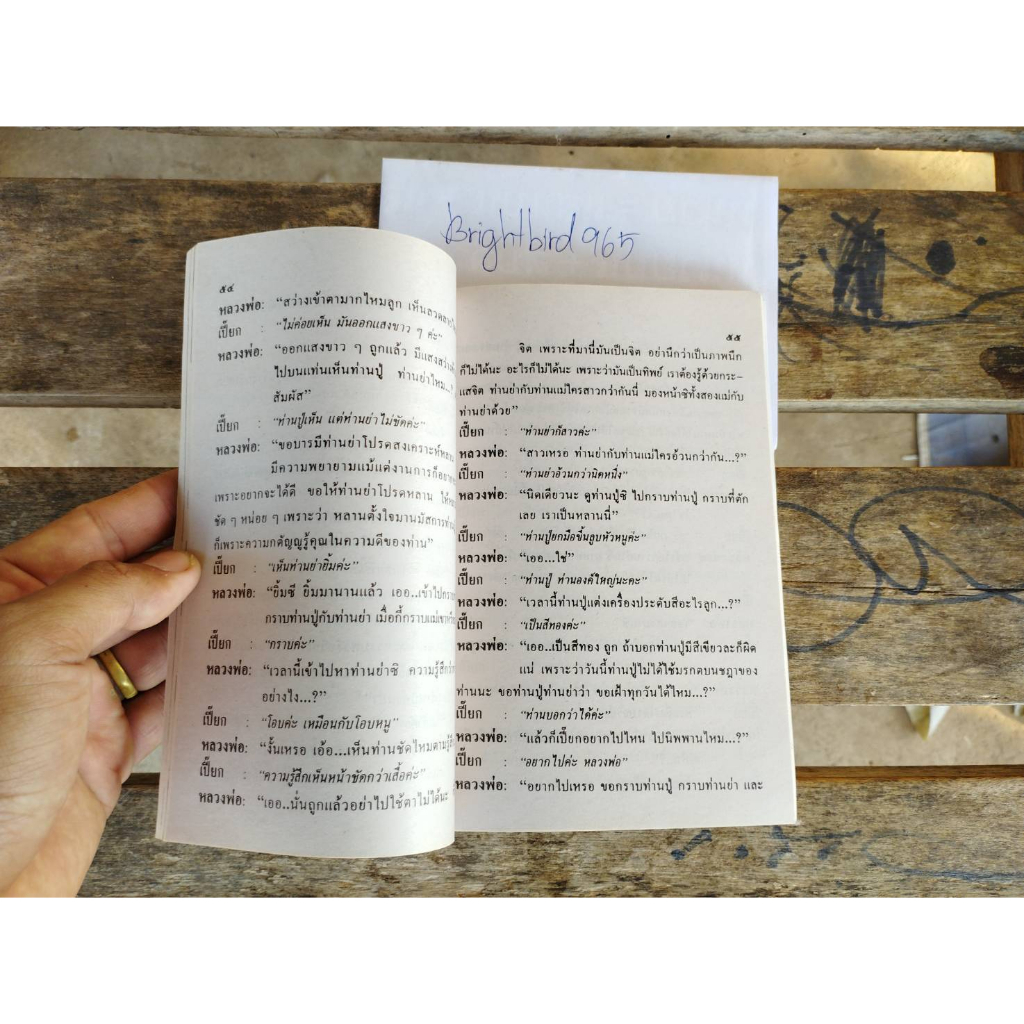 Brightbird 965
๕๔
หลวงพ่อ: “สว่างเข้าตามากไหมลูก เห็น
เปี๊ยก : “ไม่ค่อยเห็น มันออกแสงขาว ๆ ค่ะ”
หลวงพ่อ: “ออกแสงขาว ๆ ถูกแล้ว มีแสงสว่าง
ไปบนแท่นเห็นท่านปู่ ท่านย่าไหม...?
สัมผัส”
เปี๊ยก : “ท่านปู่เห็น แต่ท่านย่าไม่ชัดค่ะ”
หลวงพ่อ: “ขอบารมีท่านย่าโปรดสงเคราะห์
มีความพยายามแม้แต่งานการก็
เพราะอยากจะได้ดี ขอให้ท่านย่าโปรดหลาน
ชัด ๆ หน่อย ๆ เพราะว่า หลานตั้งใจมานมัสการ
ก็เพราะความกตัญญูรู้คุณในความดีของท่าน”
เปี๊ยก : “เห็นท่านย่ายิ้มค่ะ”
หลวงพ่อ: “ยิ้มซี ยิ้มมานานแล้ว เออ..เข้าไป
กราบท่านปู่กับท่านย่า เมื่อกี้กราบแม่
เปี๊ยก : “กราบค่ะ”
หลวงพ่อ: “เวลานี้เข้าไปหาท่านย่าซิ ความรู้สึก
อย่างไง...?”
เปี๊ยก : “โอบค่ะ เหมือนกับโอบหนู”
หลวงพ่อ: “งั้นเหรอ เอ้อ...เห็นท่านชัดไหมตาม
เปี๊ยก : “ความรู้สึกเห็นหน้าชัดกว่าเสื้อค่ะ”
หลวงพ่อ: “เออ..นั่นถูกแล้วอย่าไปใช้ตาไม่ได้นะ
๕๕
จิต เพราะที่มานี่มันเป็นจิต อย่านึกว่าเป็นภาพนึก
ก็ไม่ได้นะ อะไรก็ไม่ได้นะ เพราะว่ามันเป็นทิพย์ เราต้องรู้ด้วยกระ-
แสจิต ท่านย่ากับท่านแม่ใครสาวกว่ากันนี่ มองหน้าซิทั้งสองแม่กับ
ท่านย่าด้วย”
เปี๊ยก : “ท่านย่าก็สาวค่ะ”
หลวงพ่อ: “สาวเหรอ ท่านย่ากับท่านแม่ใครอ้วนกว่ากัน...?”
เปี๊ยก : “ท่านย่าอ้วนกว่านิดหนึ่ง”
หลวงพ่อ: “นิดเดียวนะ ดูท่านปู่ซิ ไปกราบท่านปู่ กราบที่ตัก
เลย เราเป็นหลานนี่”
เปี๊ยก : “ท่านปู่ยกมือขึ้นลูบหัวหนูค่ะ”
หลวงพ่อ: “เออ...ใช่”
เปี๊ยก : “ท่านปู่ ท่านองค์ใหญ่นะคะ”
หลวงพ่อ: “เวลานี้ท่านปู่แต่งเครื่องประดับสีอะไรลูก...?”
เปี๊ยก : “เป็นสีทองค่ะ”
หลวงพ่อ: “เออ..เป็นสีทอง ถูก ถ้าบอกท่านปู่มีสีเขียวละก็ผิด
แน่ เพราะว่าวันนี้ท่านปู่ไม่ได้ใช้มรกตบนชฎาของ
ท่านนะ ขอท่านปู่ท่านย่าว่า ขอเฝ้าทุกวันได้ไหม...?”
เปี๊ยก : “ท่านบอกว่าได้ค่ะ”
หลวงพ่อ: “แล้วก็เปี๊ยกอยากไปไหน ไปนิพพานไหม...?”
เปี๊ยก : “อยากไปค่ะ หลวงพ่อ”
หลวงพ่อ: “อยากไปเหรอ ขอกราบท่านปู่ กราบท่านย่า และ